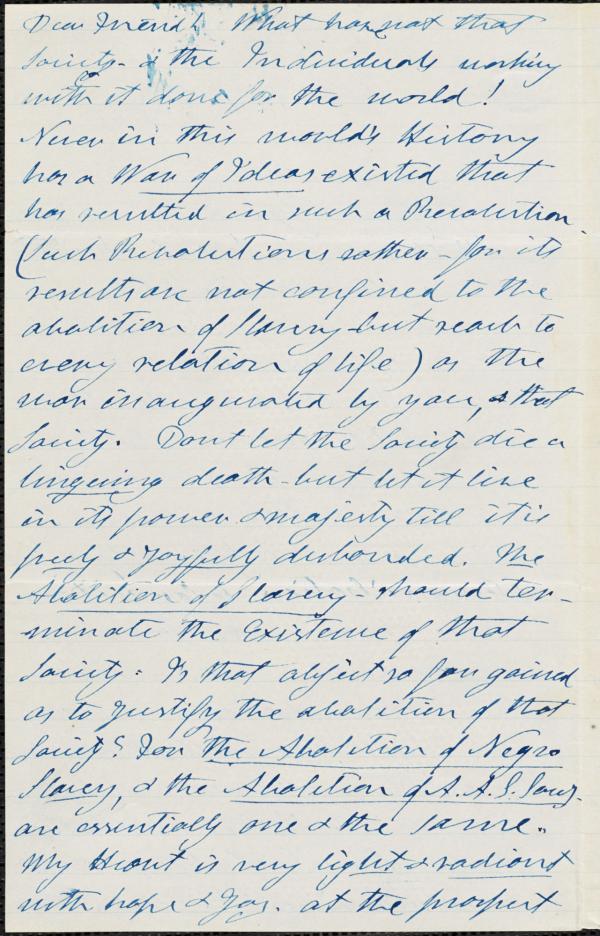 Dear Friend! What has not that
Society - & the Individuals working
with it done for the world!
Never in this world's History
has a War of Ideas existed that
has resulted in such a Revolution.
(Such Revolutions rather - for its
results are not confined to the
abolition of Slavery - but reach to
every relation of life) as the
war inaugurated by you, & that
Society. Dont let the Society die a
lingering death - but let it live
in its power & majesty till it is
freely & joyfully disbanded. The
Abolition of Slavery should ter-
minate the Existence of that
Society. Is that object so far gained
as to justify the abolition of that
Society? For the Abolition of Negro
Slavery, & the Abolition of A. A. S. Socy.
are essentially one & the same.
My Heart is very light & radiant
with hope & Joy. at the prospect